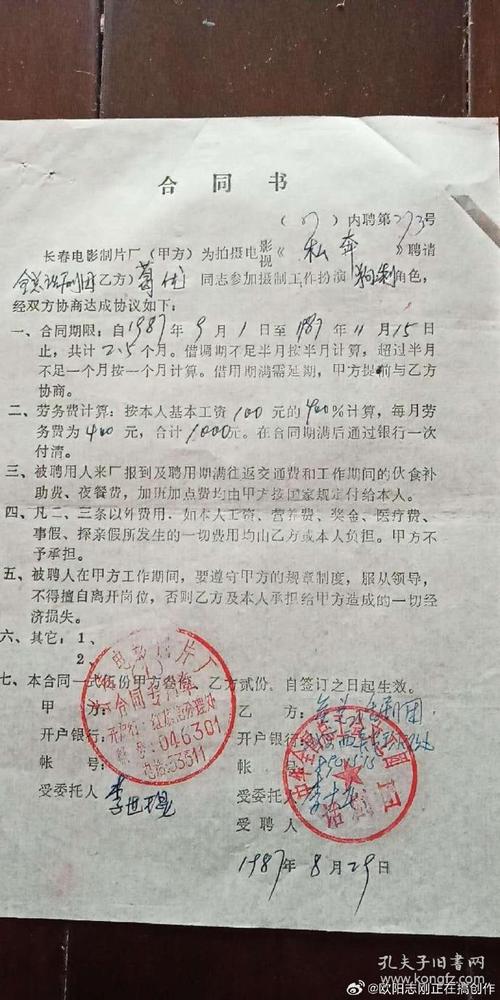 合同书
(87)内聘第273号
长春电影制片厂(甲方)为拍摄电影视《私奔》聘请
全总话剧团(乙方)葛优同志参加摄制工作扮演狗剩角色,
经双方协商达成协议如下:
一、合同期限:自1987年9月1日至1987年11月15日
止,共计2.5个月。借调期不足半月按半月计算,超过半月
不足一个月按一个月计算。借用期满需延期,甲方提前与乙方
协商。
二、劳务费计算:按本人基本工资100元的400%计算,每月劳
务费为400元,合计1000元。在合同期满后通过银行一次
付清。
三、被聘用人来厂报到及聘用期满往返交通费和工作期间的伙食补
助费、夜餐费,加班加点费均由甲方按国家规定付给本人。
四、凡二、三条以外费用.如本人工资、营养费、奖金、医疗费、
事假、探亲假所发生的一切费用均由乙方或本人负担。甲方不
予承担。
五、被聘人在甲方工作期间,要遵守甲方的规章制度,服从领导,
不得擅自离开岗位,否则乙方及本人承担给甲方造成的一切经
济损失。
六、其它:1、
2、
七、本合同一式伍份甲方叁份,乙方贰份,自签订之日起生效。
甲方: 乙方:全总话剧团
开户银行: 开户银行:
帐号: 帐号:
受委托人李世琨 受委托人
受聘人
电影制片厂
合同专用章
046301
电话:53511
话剧团
1987年8月29日
孔夫子旧书网
@欧阳志刚正在搞创作